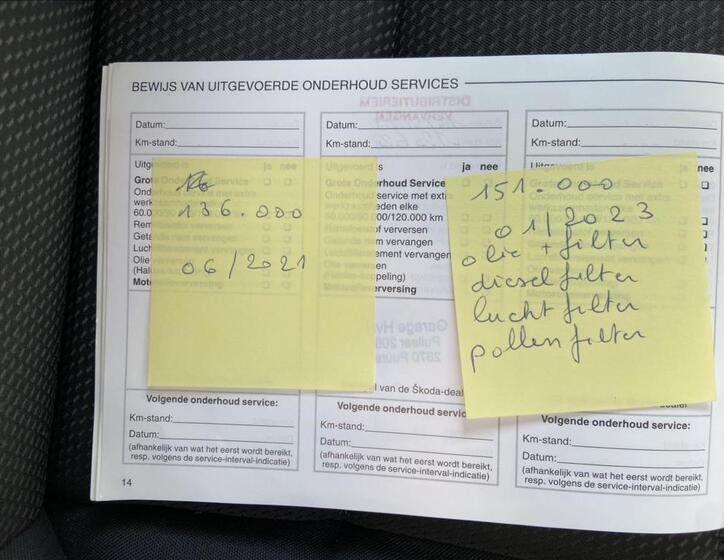 BEWIJS VAN UITGEVOERDE ONDERHOUD SERVICES
Datum:
Km-stand:
Uitg
Grote
Ond
werk
60.0
Rem
Geta
Luch
Olie
(Hal
Moto
136.000
06/2021
Volgende onderhoud service:
Km-stand:
Datum:
(afhankelijk van wat het eerst wordt bereikt,
resp. volgens de service-interval-indicatie)
Datum:
Km-stand:
ja nee
rhoud Service
service met extra
eden elke
00/120.000 km
f verversen
m vervangen
ement vervangen
en
peling)
erversing
l van de Škoda-deal
Volgende onderhoud servic
Km-stand:
Datum:
(afhankelijk van wat het eerst wordt bereikt,
resp. volgens de service-interval-indicatie)
Datum:
Km-stand:
nee
151.000
01/2023
olie + filter
diesel filter
lucht filter
pollen filter
Volgende onderhoud service:
Km-stand:
Datum:
(afhankelijk van wat het eerst wordt bereikt,
resp. volgens de service-interval-indicatie)
14